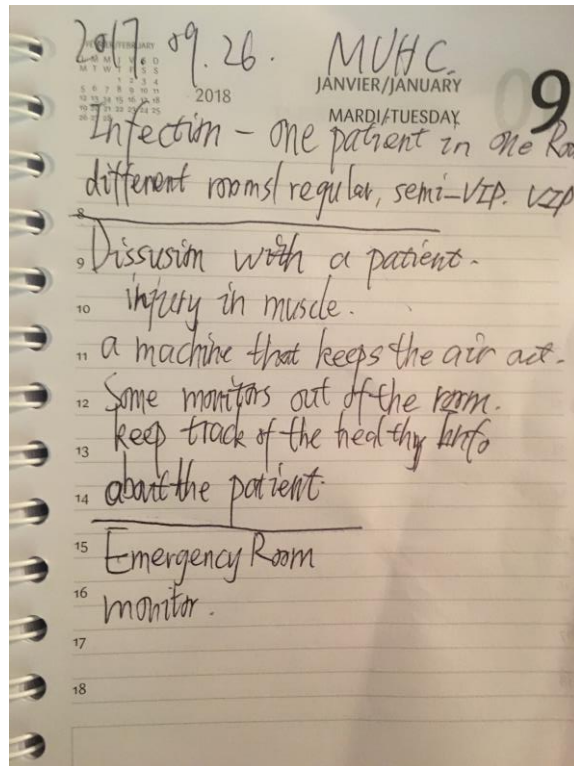 2017. 09. 26. MUHC.
FEVRIER/FEBRUARY
2018
JANVIER/JANUARY
09
9
MARDI/TUESDAY
Infection - one patient in one Roo
different rooms/ regular, semi-VIP. VIP
8
9 Dissusion with a patient.
10 injury in muscle.
11 a machine that keeps the air act.
12 Some monitors out of the room.
13 keep track of the healthy Info
14 about the patient.
15 Emergency Room
16 monitor.
17
18